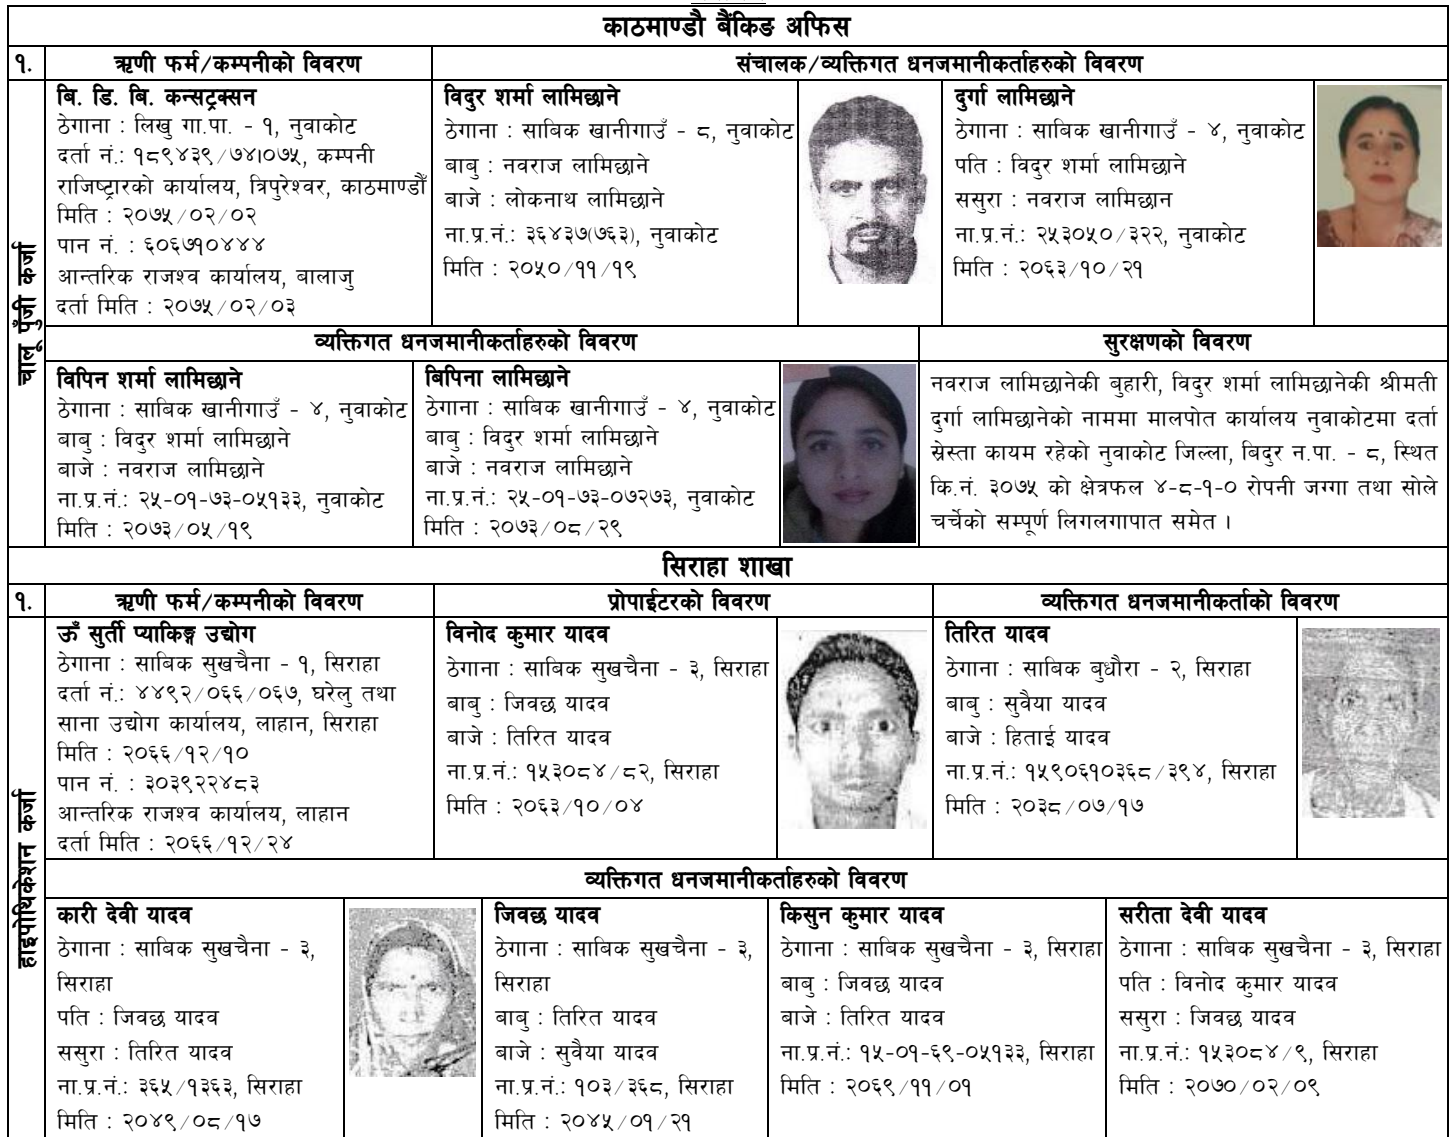 काठमाण्डौ बैंकिङ अफिस
१.
ऋणी फर्म/कम्पनीको विवरण
संचालक/व्यक्तिगत धनजमानीकर्ताहरुको विवरण
चालू पुँजी कर्जा
बि. डि. बि. कन्सट्रक्सन
ठेगाना : लिखु गा.पा. - १, नुवाकोट
दर्ता नं.: १८९४३९/७४।०७५, कम्पनी
राजिष्ट्रारको कार्यालय, त्रिपुरेश्वर, काठमाण्डौं
मिति : २०७५/०२/०२
पान नं. : ६०६७१०४४४
आन्तरिक राजश्व कार्यालय, बालाजु
दर्ता मिति : २०७५/०२/०३
विदुर शर्मा लामिछाने
ठेगाना : साबिक खानीगाउँ - ८, नुवाकोट
बाबु : नवराज लामिछाने
बाजे : लोकनाथ लामिछाने
ना.प्र.नं.: ३६४३७(७६३), नुवाकोट
मिति : २०५०/११/१९
दुर्गा लामिछाने
ठेगाना : साबिक खानीगाउँ - ४, नुवाकोट
पति : विदुर शर्मा लामिछाने
ससुरा : नवराज लामिछान
ना.प्र.नं.: २५३०५०/३२२, नुवाकोट
मिति : २०६३/१०/२१
व्यक्तिगत धनजमानीकर्ताहरुको विवरण
सुरक्षणको विवरण
विपिन शर्मा लामिछाने
ठेगाना : साबिक खानीगाउँ - ४, नुवाकोट
बाबु : विदुर शर्मा लामिछाने
बाजे : नवराज लामिछाने
ना.प्र.नं.: २५-०१-७३-०५१३३, नुवाकोट
मिति : २०७३/०५/१९
बिपिना लामिछाने
ठेगाना : साबिक खानीगाउँ - ४, नुवाकोट
बाबु : विदुर शर्मा लामिछाने
बाजे : नवराज लामिछाने
ना.प्र.नं.: २५-०१-७३-०७२७३, नुवाकोट
मिति : २०७३/०८/२९
नवराज लामिछानेकी बुहारी, विदुर शर्मा लामिछानेकी श्रीमती
दुर्गा लामिछानेको नाममा मालपोत कार्यालय नुवाकोटमा दर्ता
स्रेस्ता कायम रहेको नुवाकोट जिल्ला, बिदुर न.पा. - ८, स्थित
कि.नं. ३०७५ को क्षेत्रफल ४-८-१-० रोपनी जग्गा तथा सोले
चर्चेको सम्पूर्ण लिगलगापात समेत ।
सिराहा शाखा
१.
ऋणी फर्म/कम्पनीको विवरण
प्रोपाईटरको विवरण
व्यक्तिगत धनजमानीकर्ताको विवरण
हाइपोथिकेशन कर्जा
ऊँ सुर्ती प्याकिङ्ग उद्योग
ठेगाना : साबिक सुखचैना - १, सिराहा
दर्ता नं.: ४४९२/०६६/०६७, घरेलु तथा
साना उद्योग कार्यालय, लाहान, सिराहा
मिति : २०६६/१२/१०
पान नं. : ३०३९२२४८३
आन्तरिक राजश्व कार्यालय, लाहान
दर्ता मिति : २०६६/१२/२४
विनोद कुमार यादव
ठेगाना : साबिक सुखचैना - ३, सिराहा
बाबु : जिवछ यादव
बाजे : तिरित यादव
ना.प्र.नं.: १५३०८४/८२, सिराहा
मिति : २०६३/१०/०४
तिरित यादव
ठेगाना : साबिक बुधौरा - २, सिराहा
बाबु : सुवैया यादव
बाजे : हिताई यादव
ना.प्र.नं.: १५९०६१०३६८/३९४, सिराहा
मिति : २०३८/०७/१७
व्यक्तिगत धनजमानीकर्ताहरुको विवरण
कारी देवी यादव
ठेगाना : साबिक सुखचैना - ३,
सिराहा
पति : जिवछ यादव
ससुरा : तिरित यादव
ना.प्र.नं.: ३६५/१३६३, सिराहा
मिति : २०४९/०८/१७
जिवछ यादव
ठेगाना : साबिक सुखचैना - ३,
सिराहा
बाबु : तिरित यादव
बाजे : सुवैया यादव
ना.प्र.नं.: १०३/३६८, सिराहा
मिति : २०४५/०१/२१
किसुन कुमार यादव
ठेगाना : साबिक सुखचैना - ३, सिराहा
बाबु : जिवछ यादव
बाजे : तिरित यादव
ना.प्र.नं.: १५-०१-६९-०५१३३, सिराहा
मिति : २०६९/११/०१
सरीता देवी यादव
ठेगाना : साबिक सुखचैना - ३, सिराहा
पति : विनोद कुमार यादव
ससुरा : जिवछ यादव
ना.प्र.नं.: १५३०८४/९, सिराहा
मिति : २०७०/०२/०९